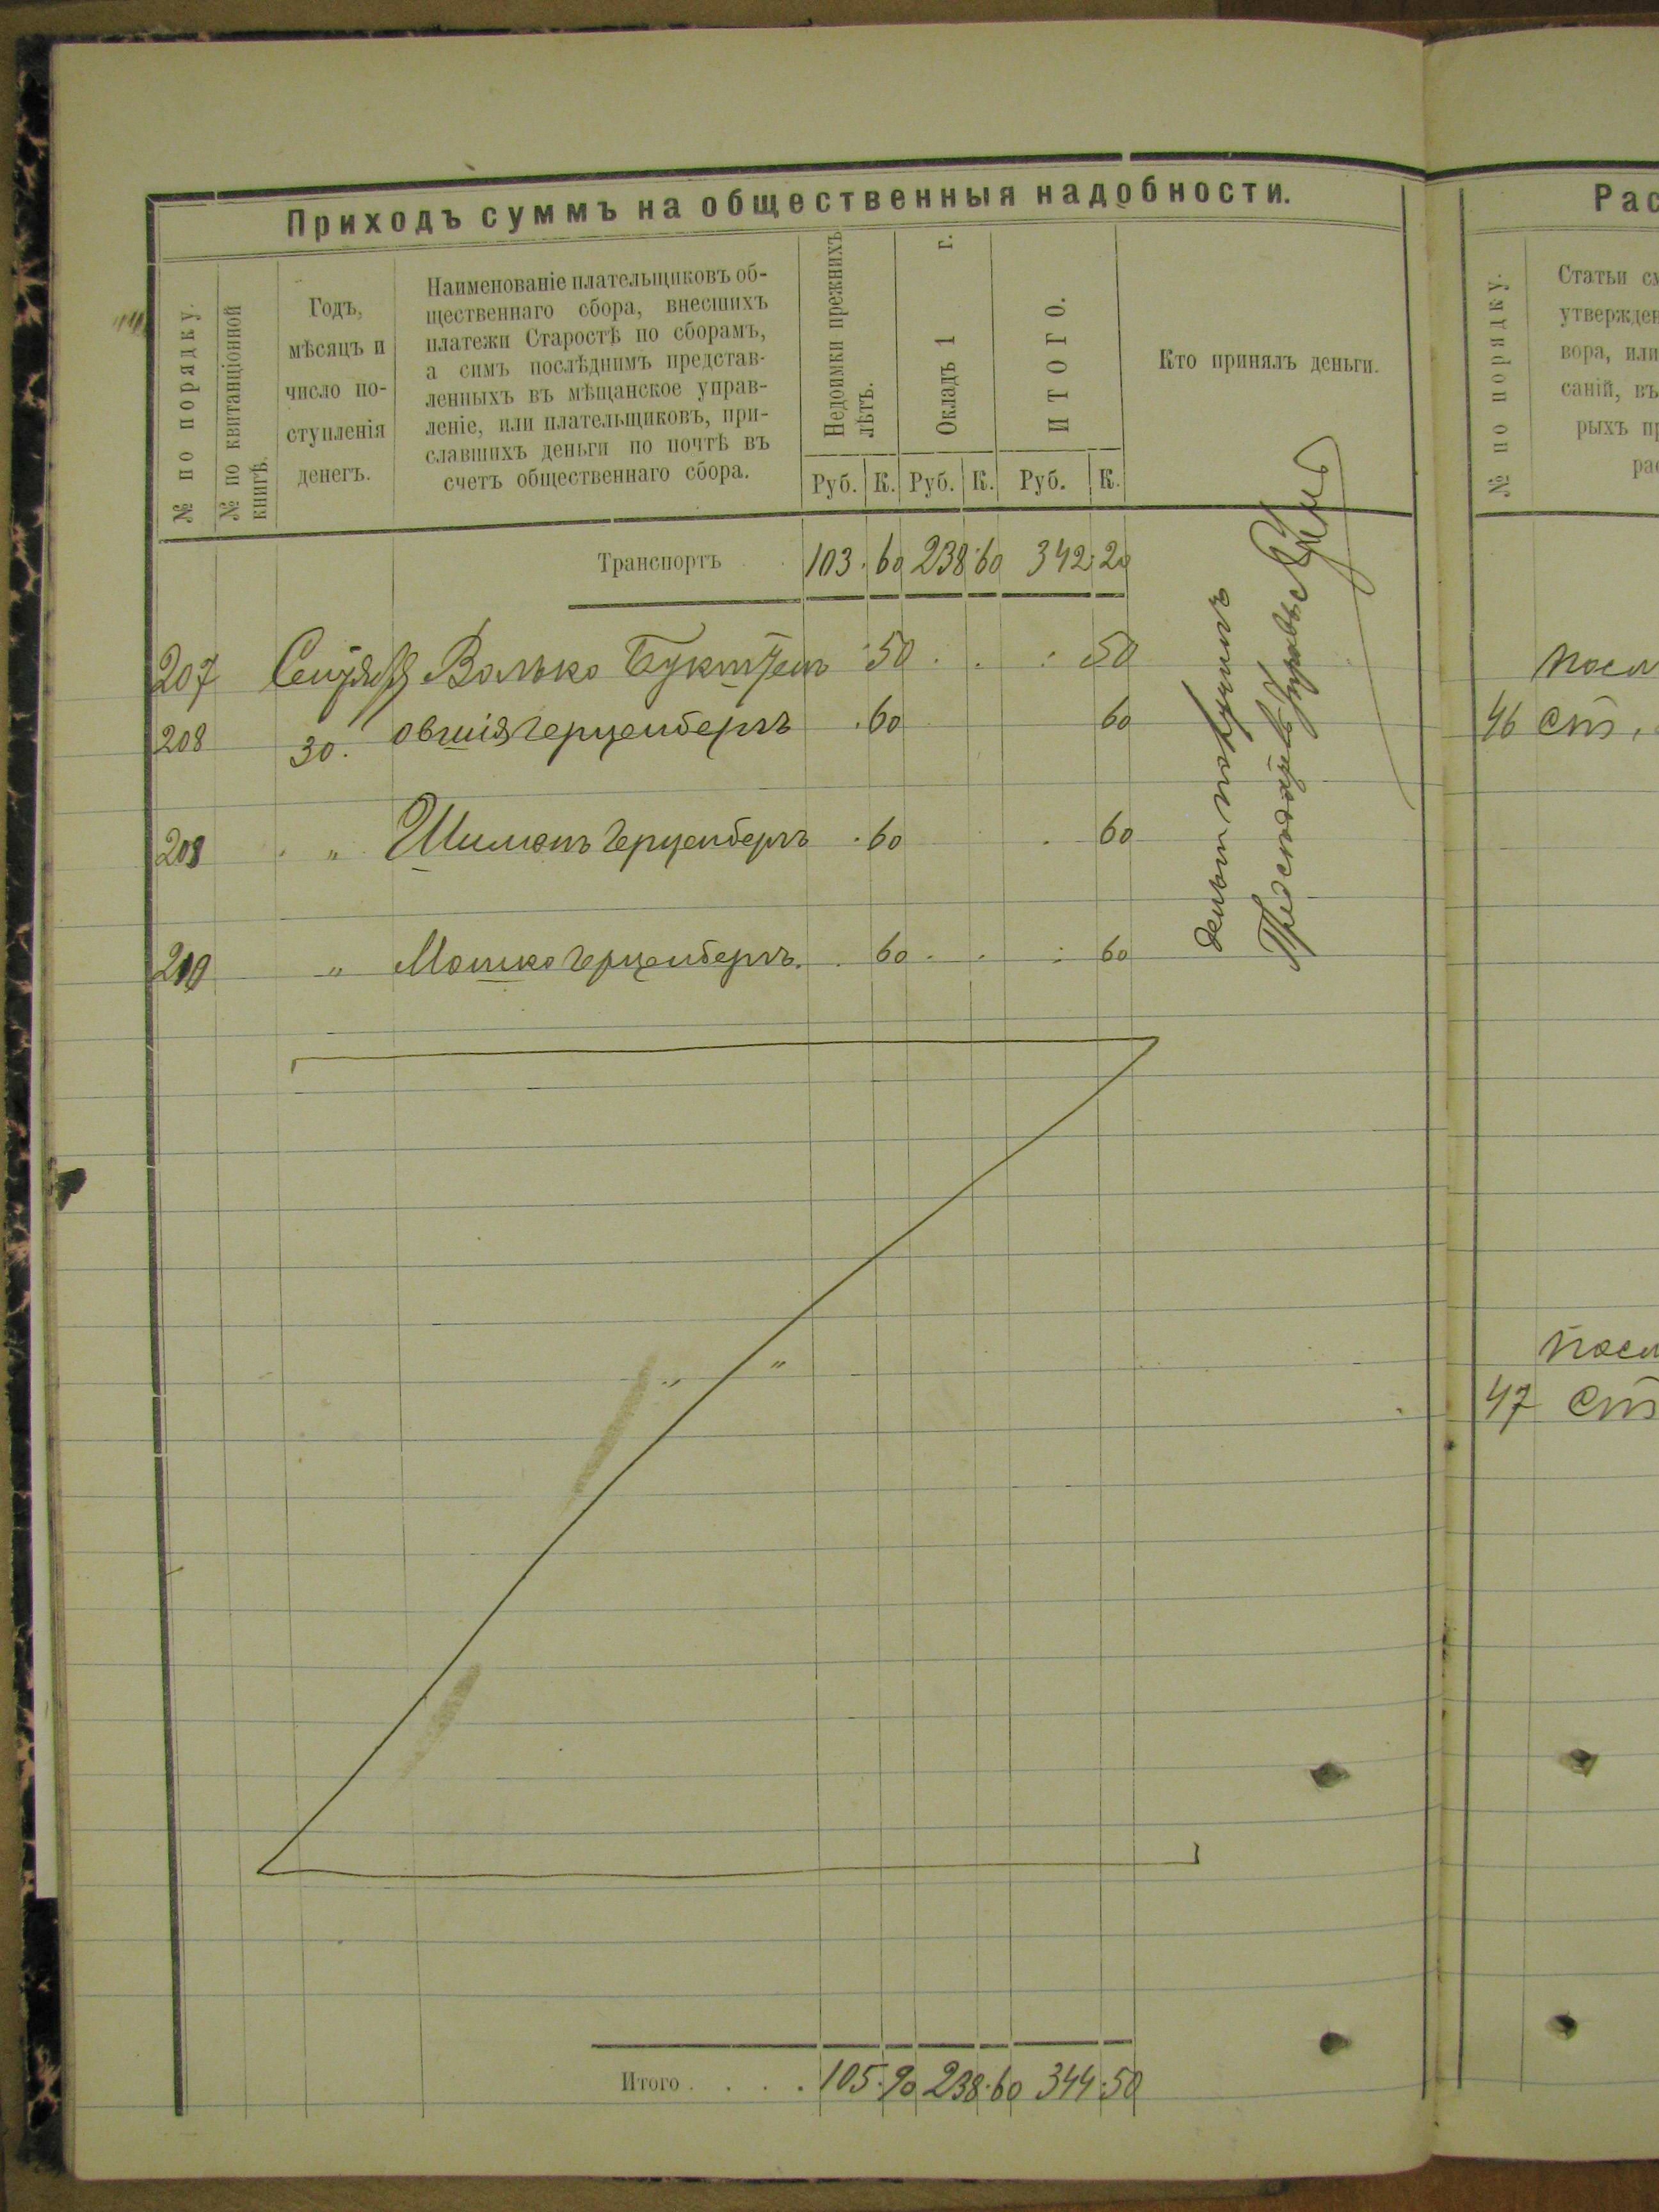 Приходъ суммъ на общественныя надобности.
№ по порядку.
№ по квитанціонной
книгѣ.
Годъ,
мѣсяцъ и
число по-
ступленія
денегъ.
Наименованіе плательщиковъ об-
щественнаго сбора, внесшихъ
платежи Старостѣ по сборамъ,
а симъ послѣднимъ представ-
ленныхъ въ мѣщанское управ-
леніе, или плательщиковъ, при-
славшихъ деньги по почтѣ въ
счетъ общественнаго сбора.
Недоимки прежнихъ
лѣтъ.
Окладъ 1 г.
ИТОГО.
Кто принялъ деньги.
Руб. К. Руб. К. Руб. К.
Транспортъ 103 60 238 60 342 20
207 Волько 50 50
208 30. Овшія Герценбергъ 60 60
209 " Шиманъ Герценбергъ 60 60
210 " Мошко Герценбергъ 60 60
" "
Итого . . . . 105 90 238 60 344 50
Рас
№ по порядку.
Статьи су
утвержден
вора, или
саній, въ
рыхъ пр
рас
46 ст.
47 ст